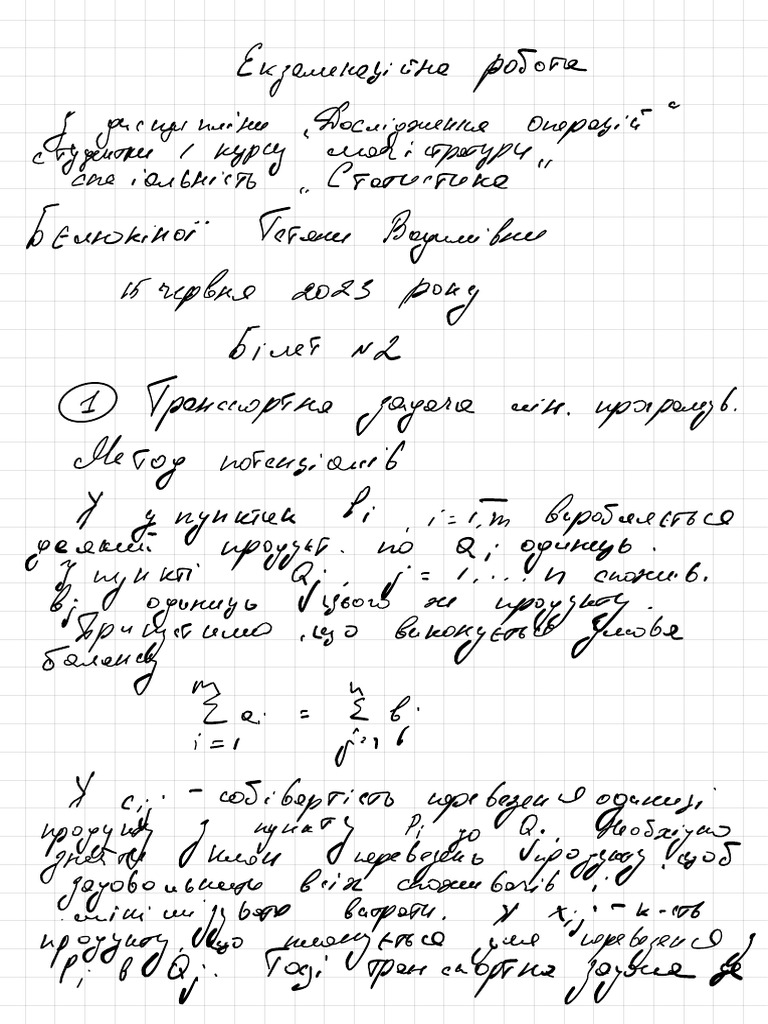 Екзаменаційна робота
З дисципліни „Дослідження операцій“
студентки 1 курсу магістратури
спеціальність „Статистика“
Бєлюкіної Тетяни Вадимівни
15 червня 2023 року
Білет №2
① Транспортна задача лін. програмув.
Метод потенціалів
У пунктах Pi, i = 1,m виробляється
деякий продукт. по ai одиниць.
У пункті Qj, j = 1,...n спожив.
bj одиниць цього ж продукту.
Припустимо, що виконується умова
балансу
m n
Σ ai = Σ bj
i=1 j=1
cij - собівартість перевезення одиниці
продукту з пункту Pi до Qj. Необхідно
знайти план перевезень продукту, щоб
задовольнити всіх споживачів і
мінімізувати витрати. xij - к-сть
продукту, що планується для перевезення з
Pi в Qj. Тоді транспортна задача